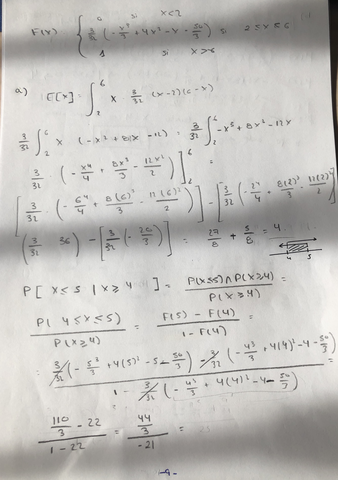 0 si x<2
F(x) { 3/32 (-x³/3 + 4x² - x - 50/3) si 2≤x≤6
1 si x>6
a) E[x] = ∫₂⁶ x 3/32 (x-2)(6-x)
3/32 ∫₂⁶ x (-x² + 8x - 12) = 3/32 ∫₂⁶ -x³ + 8x² - 12x
3/32 · (-x⁴/4 + 8x³/3 - 12x²/2)]₂⁶
[3/32 · (-6⁴/4 + 8(6)³/3 - 12(6)²/2)] - [3/32 (-2⁴/4 + 8(2)³/3 - 12(2)²/2)]
(3/32 · 36) - [3/32 (-20/3)] = 27/8 + 5/8 = 4
4 5
P[x≤5 | x≥4] = P(x≤5) ∩ P(x≥4) / P(x≥4) =
P(4≤x≤5) / P(x≥4) = F(5) - F(4) / 1 - F(4) =
3/32 (-5³/3 + 4(5)² - 5 - 50/3) - 3/32 (-4³/3 + 4(4)² - 4 - 50/3) =
1 - 3/32 (-4³/3 + 4(4)² - 4 - 50/3)
110/3 - 22 / 1 - 22 = 44/3 / -21 =